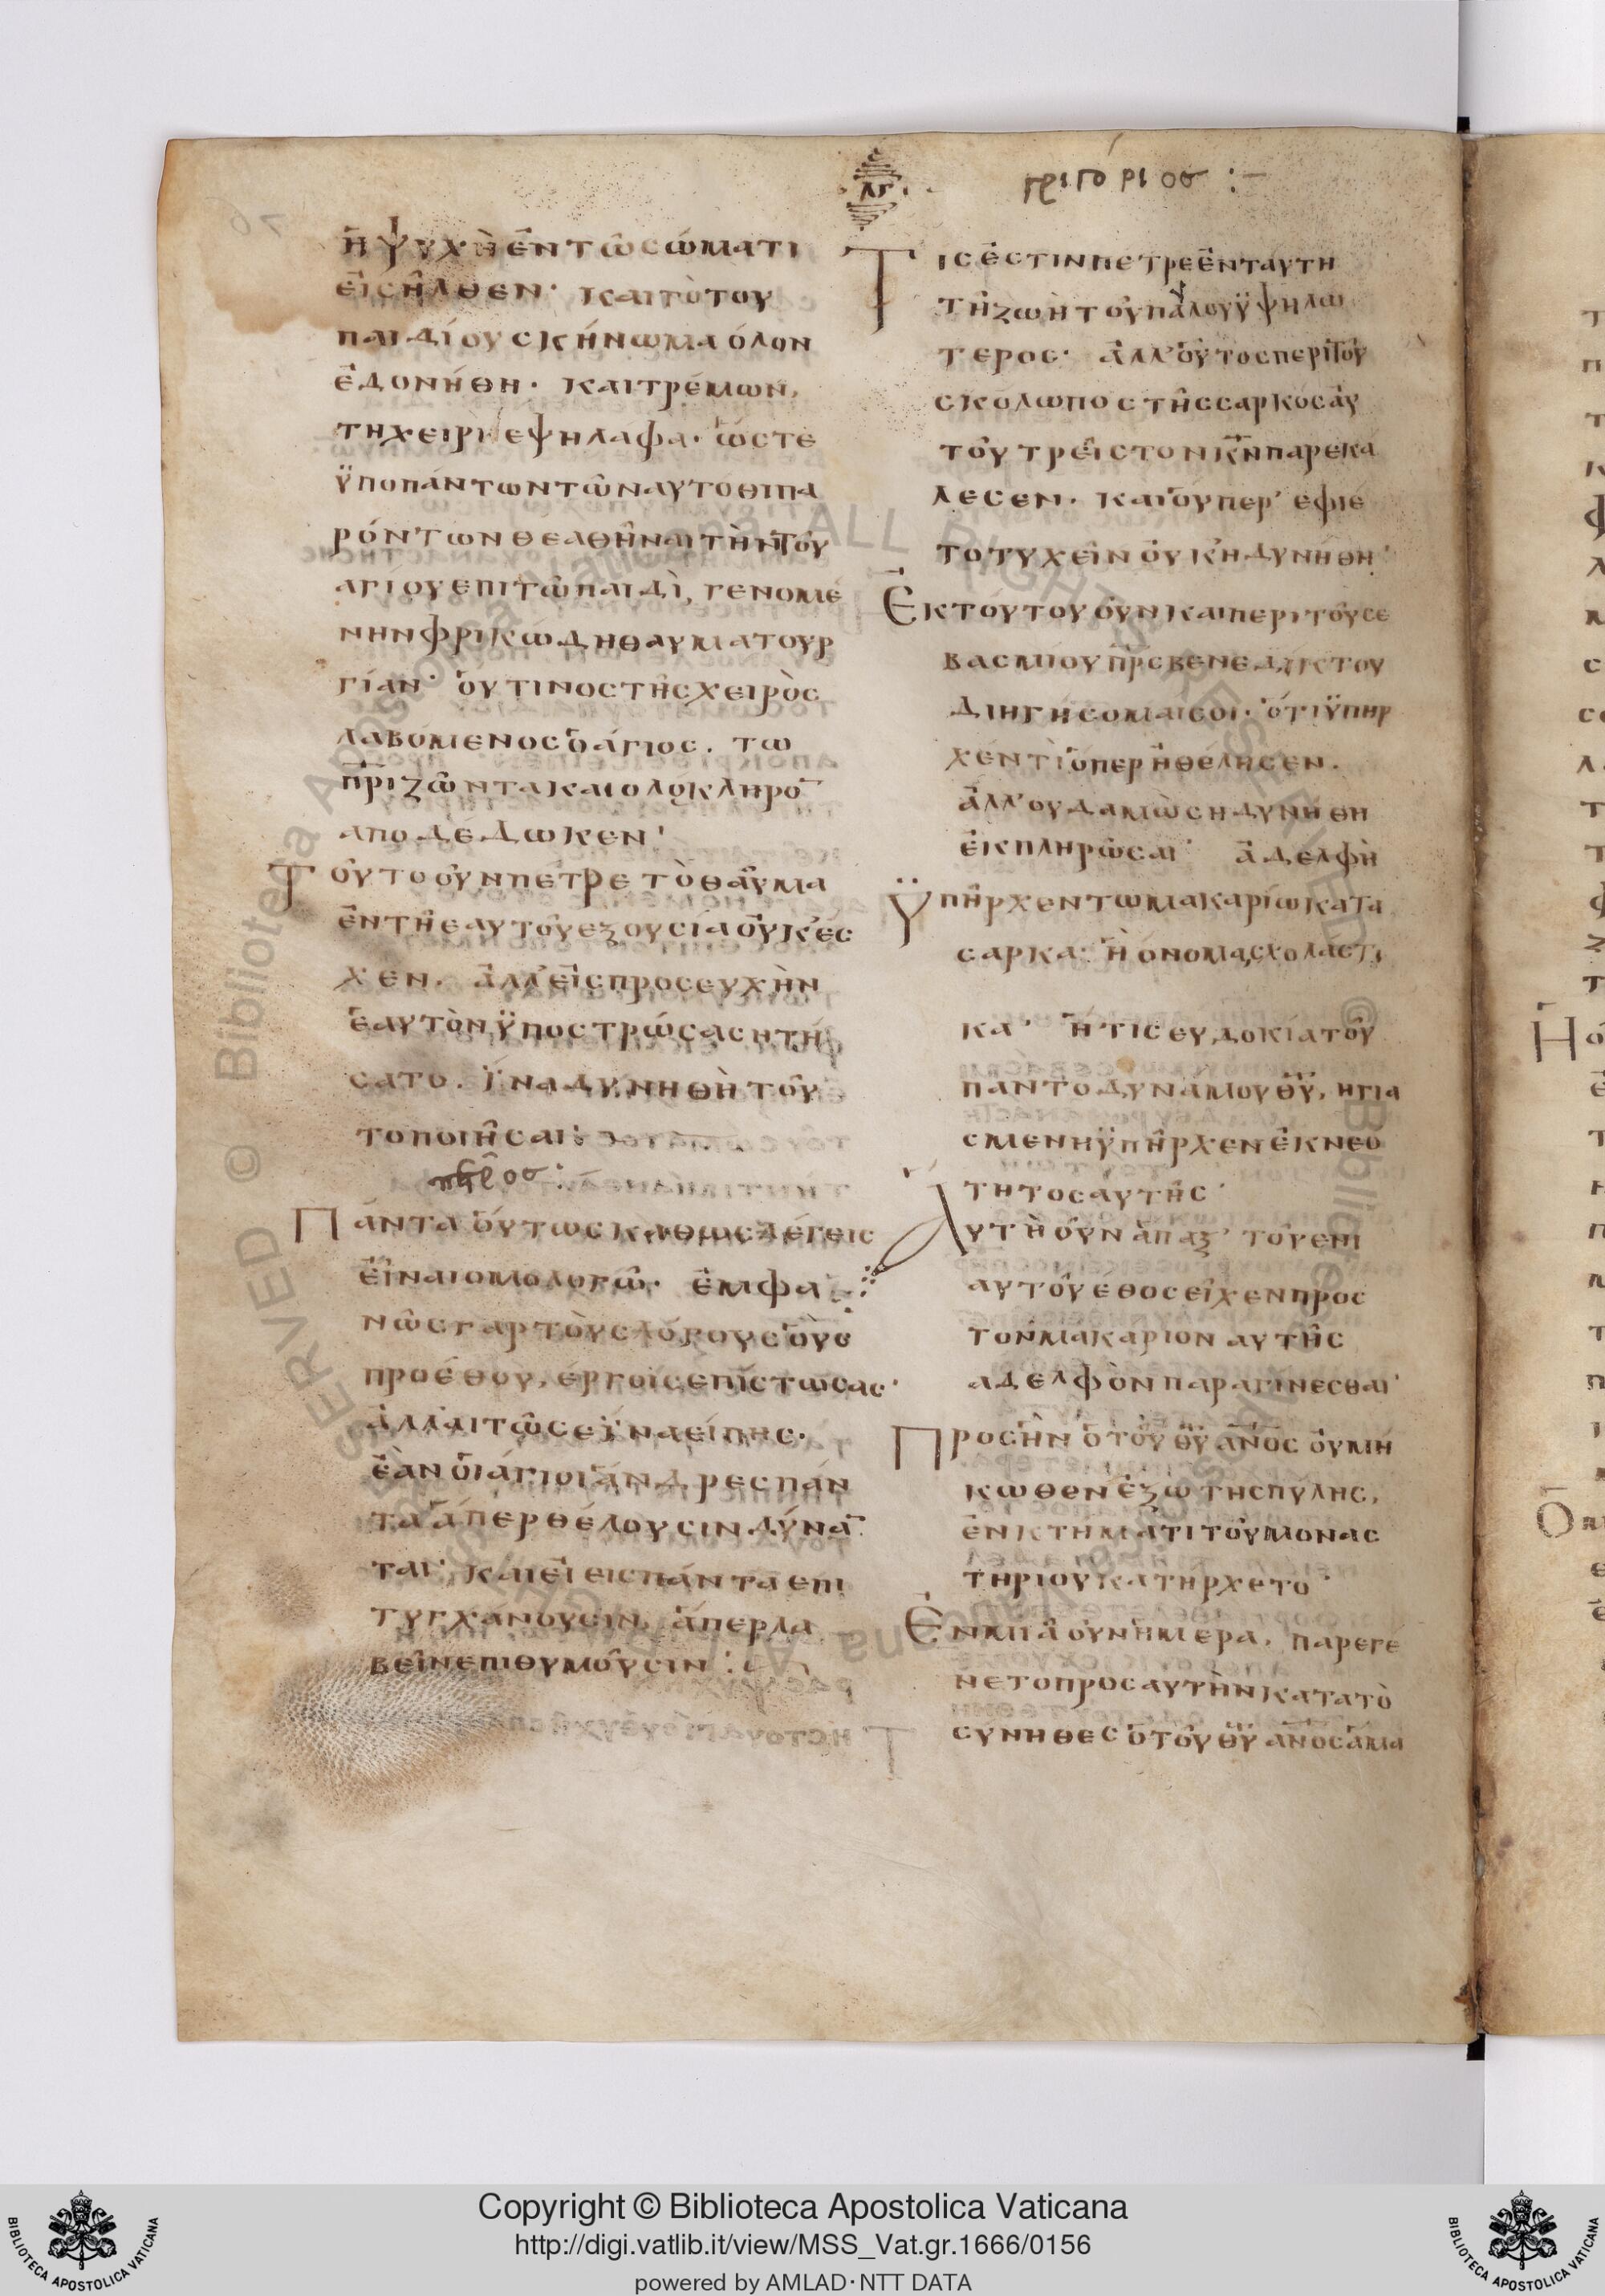 ἡ ψυχὴ ἐν τῶ σώματι
εἰσῆλθεν· και τὸ του
παιδίου σκήνωμα όλον
ἐδονήθη· και τρέμων,
τη χειρὶ εψηλαφα· ὡστε
ϋπο πάντων τῶν αυτοθι πα
ρόντων θεαθῆναι τὴν τοῦ
αγίου επι τῶ παιδὶ, γενομέ
νην φρικώδη θαυματουρ
γίαν· οὑτινος τῆς χειρὸς
λαβόμενος ὁ άγιος. τω
π̅ρ̅ι̅ ζῶντα και ολόκληρο̅
αποδέδωκεν·
Τοῦτο οὖν πέτρε τὸ θαῦμα
ἐν τῆ εαυτοῦ εξουσία οὐκ έσ
χεν. ἀλλ' εἰς προσευχὴν
ἑαυτὸν ϋποστρώσας ητή
σατο. ϊνα δυνηθὴ τοῦ
το ποιῆσαι:
πέτρος:
Πάντα οὑτως καθως λέγεις
εἶναι ομολογῶ· ἐμφα
νῶς γαρ τοὺς λόγους οὓς
προέθου, έργοις επίστωσας·
ἀλλ' αιτῶ σε ϊνα είπης·
ἐὰν ὁι άγιοι άνδρες πάν
τα ἁπερ θέλουσιν δύνα̅
ται· και εἰ εις πάντα επι
τυγχάνουσιν, ἁπερ λα
βεῖν επιθυμοῦσιν:
λγ
γριγόριοσ :-
Τίς ἐστιν πέτρε ἐν ταυτη
τῆ ζωῆ τοῦ παύλου ϋψηλω
τερος· ἀλλ' οὗτος περὶ τοῦ
σκόλωπος τῆς σαρκός αὐ
τοῦ τρεῖς τον κ̅ν̅ παρεκά
λεσεν. και οὑπερ' εφιέ
το τυχεῖν οὐκ ἠδυνήθη·
Ἐκ τούτου οὖν και περι τοῦ σε
βασμιου π̅ρ̅ς βενεδικτου
διηγήσομαι σοι· ὁτι ϋπηρ
χέν τὶ ὁπερ ἠθέλησεν.
ἀλλ' ουδαμῶς ηδυνήθη
ἐκπληρῶσαι· ἀδελφὴ
Ϋπῆρχεν τω μακαρίω κατα
σαρκα· ἧ όνομα, σχολαστι
κα· ἥτις ευδοκία τοῦ
παντοδυνάμου θ̅υ̅, ηγια
σμενη ϋπῆρχεν ἐκ νεό
τητος αυτῆς·
Αυτὴ οὖν ἁπαξ' τοῦ ενι
αυτοῦ έθος εἶχεν προς
τον μακαριον αυτῆς
αδελφὸν παραγίνεσθαι·
Πρὸς ἣν ὁ τοῦ θ̅υ̅ α̅ν̅ο̅ς̅ οὐ μή
κωθεν ἐξω της πύλης,
ἐν κτήματι τοῦ μονας
τηρίου κατήρχετο·
Ἐν μιᾶ οὖν ἡμερα, παρεγέ
νετο προς αυτὴν κατα τὸ
σύνηθες ὁ τοῦ θ̅υ̅ α̅ν̅ο̅ς̅ ἁμα
VED © Biblioteca Apostolica Vaticana ALL RIGHTS RESERVED © Biblioteca Apostolica Vaticana ALL RIGHTS RESERVED
Copyright © Biblioteca Apostolica Vaticana
http://digi.vatlib.it/view/MSS_Vat.gr.1666/0156
powered by AMLAD·NTT DATA
BIBLIOTECA APOSTOLICA VATICANA
BIBLIOTECA APOSTOLICA VATICANA